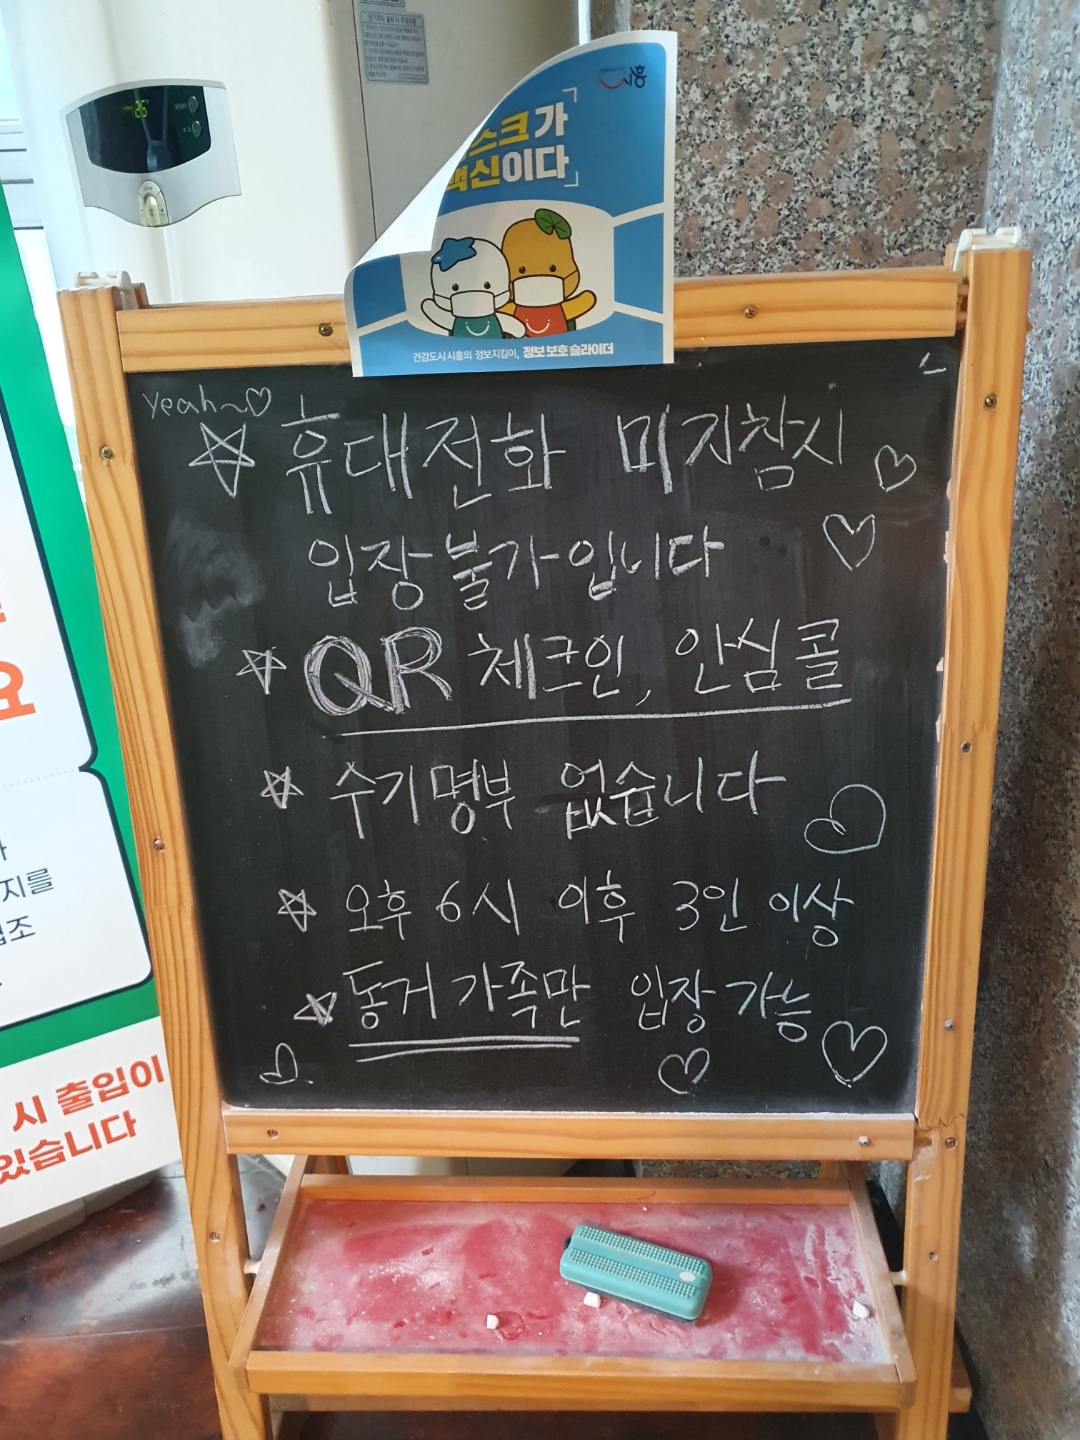 26
스크가
백신이다
건강도시 시흥의 정보지킴이, 정보 보호 슬라이더
yeah~♡
☆ 휴대전화 미지참시
입장불가입니다
☆ QR 체크인, 안심콜
☆ 수기명부 없습니다
☆ 오후 6시 이후 3인 이상
☆ 동거 가족만 입장 가능
요
지를
협조
시 출입이
있습니다